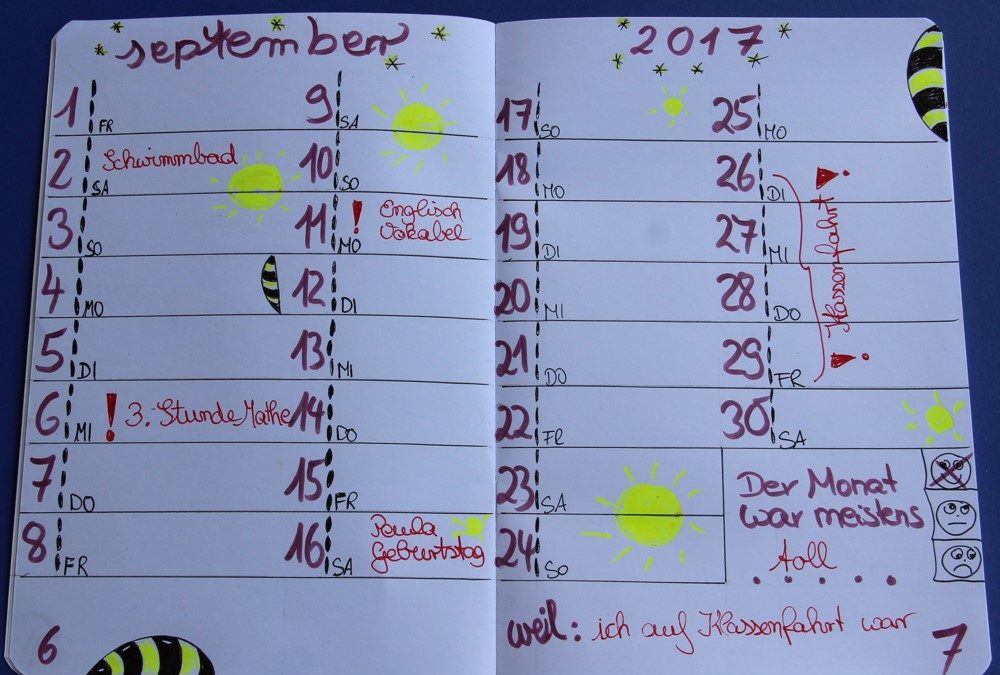 september
1 FR
2 SA Schwimmbad
3 SO
4 MO
5 DI
6 MI ! 3. Stunde Mathe
7 DO
8 FR
9 SA
10 SO
11 MO ! Englisch
Vokabel
12 DI
13 MI
14 DO
15 FR
16 SA Paula
Geburtstag
6
2017
17 SO
18 MO
19 DI
20 MI
21 DO
22 FR
23 SA
24 SO
25 MO
26 DI
27 MI
28 DO
29 FR
! Klassenfahrt !
30 SA
Der Monat
war meistens
toll
.....
weil: ich auf Klassenfahrt war
7